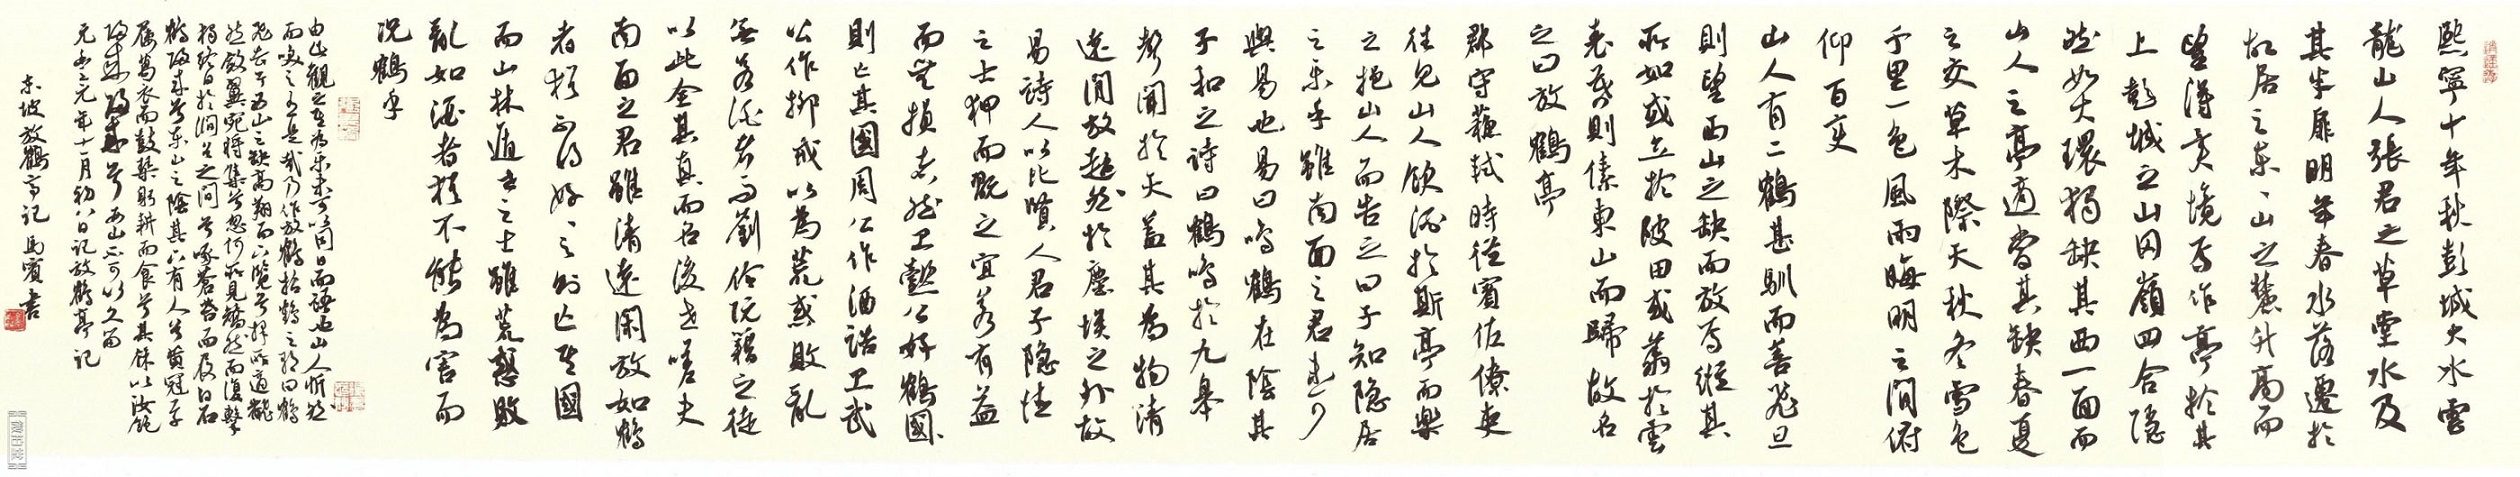 熙寧十年秋彭城大水雲
龍山人張君之草堂水及
其半扉明年春水落遷於
故居之東東山之麓升高而
望得異境焉作亭於其
上彭城之山岡嶺四合隱
然如大環獨缺其西一面而
山人之亭適當其缺春夏
之交草木際天秋冬雪月
千里一色風雨晦明之間俯
仰百變
山人有二鶴甚馴而善飛旦
則望西山之缺而放焉縱其
所如或立於陂田或翥於雲
表暮則傃東山而歸故名
之曰放鶴亭
郡守蘇軾時從賓佐僚吏
往見山人飲酒於斯亭而樂
之挹山人而告之曰子知隱居
之樂乎雖南面之君未可
與易也易曰鳴鶴在陰其
子和之詩曰鶴鳴於九皋
聲聞於天蓋其為物清
遠閒放超然於塵埃之外故
易詩人以比賢人君子隱德
之士狎而翫之宜若有益
而無損者然衛懿公好鶴國
則亡其國周公作酒誥衛武
公作抑戒以為荒惑敗亂
無若酒者而劉伶阮籍之徒
以此全其真而名後世嗟夫
南面之君雖清遠閑放如鶴
者猶不得好好之則亡其國
而山林遁世之士雖荒惑敗
亂如酒者猶不能為害而
況鶴乎
由此觀之其為樂未可以同日而語也山人忻然
而笑曰有是哉乃作放鶴招鶴之歌曰鶴
飛去兮西山之缺高翔而下覽兮擇所適翻
然斂翼宛將集兮忽何所見矯然而復擊
獨終日於澗谷之間兮啄蒼苔而履白石
鶴歸來兮東山之陰其下有人兮黃冠草
屨葛衣而鼓琴躬耕而食兮其餘以汝飽
歸來歸來兮西山不可以久留
元豐元年十一月初八日記放鶴亭記
東坡放鶴亭記 馬賓書